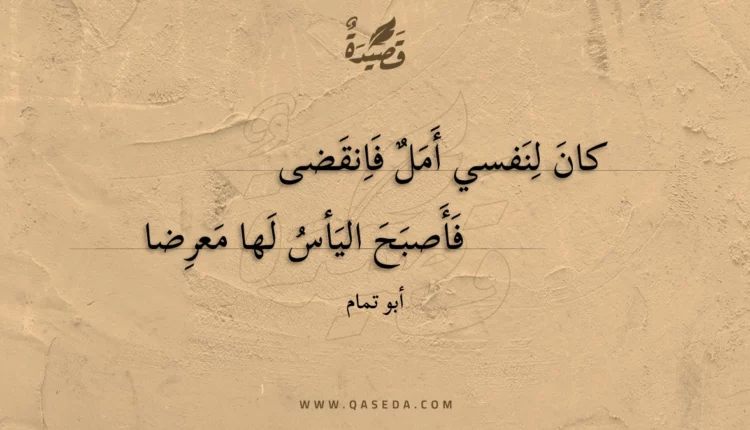 قَصِيدَةٌ
كانَ لِنَفسي أَمَلٌ فَاِنقَضى
فَأَصبَحَ اليَأسُ لَها مَعرِضا
أبو تمام
WWW.QASEDA.COM